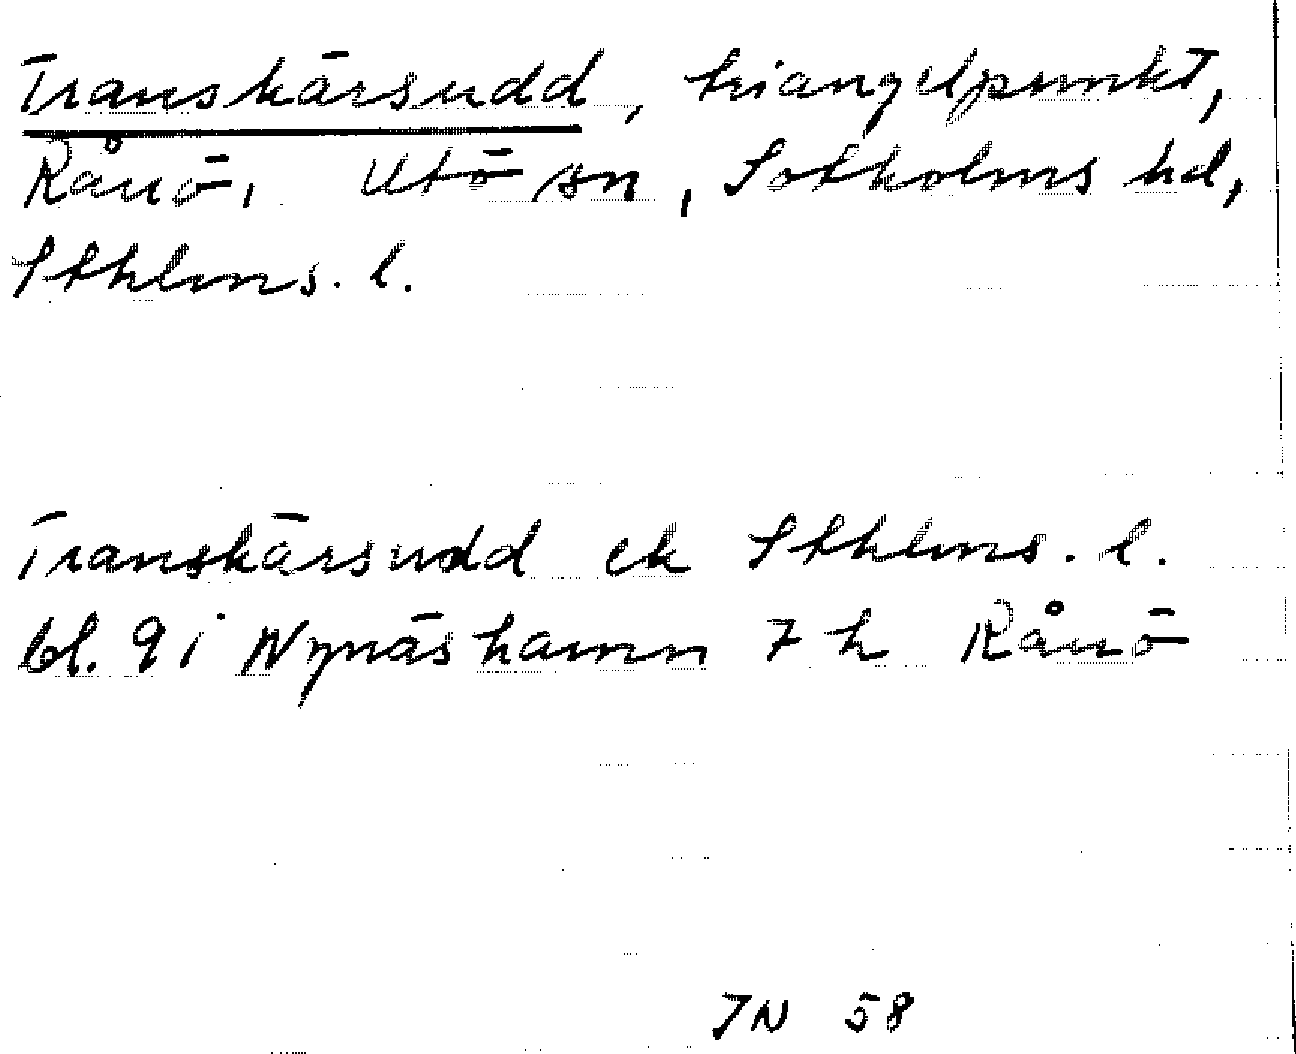 Transkärsudd, triangelpunkt,
Rånö, Utö sn, Sotholms hd,
Sthlms. l.
Transkärsudd ek Sthlms. l.
bl. 9 i Nynäshamn 7 h Rånö
JN 58